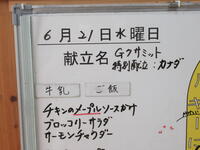 6月21日水曜日
献立名 G7サミット
特別献立:カナダ
牛乳 ご飯
チキンのメープルソースがけ
ブロッコリーサラダ
サーモンチャウダー